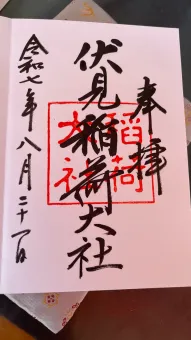 奉拝
伏見稲荷大社
令和七年八月二十一日
稲荷
大社